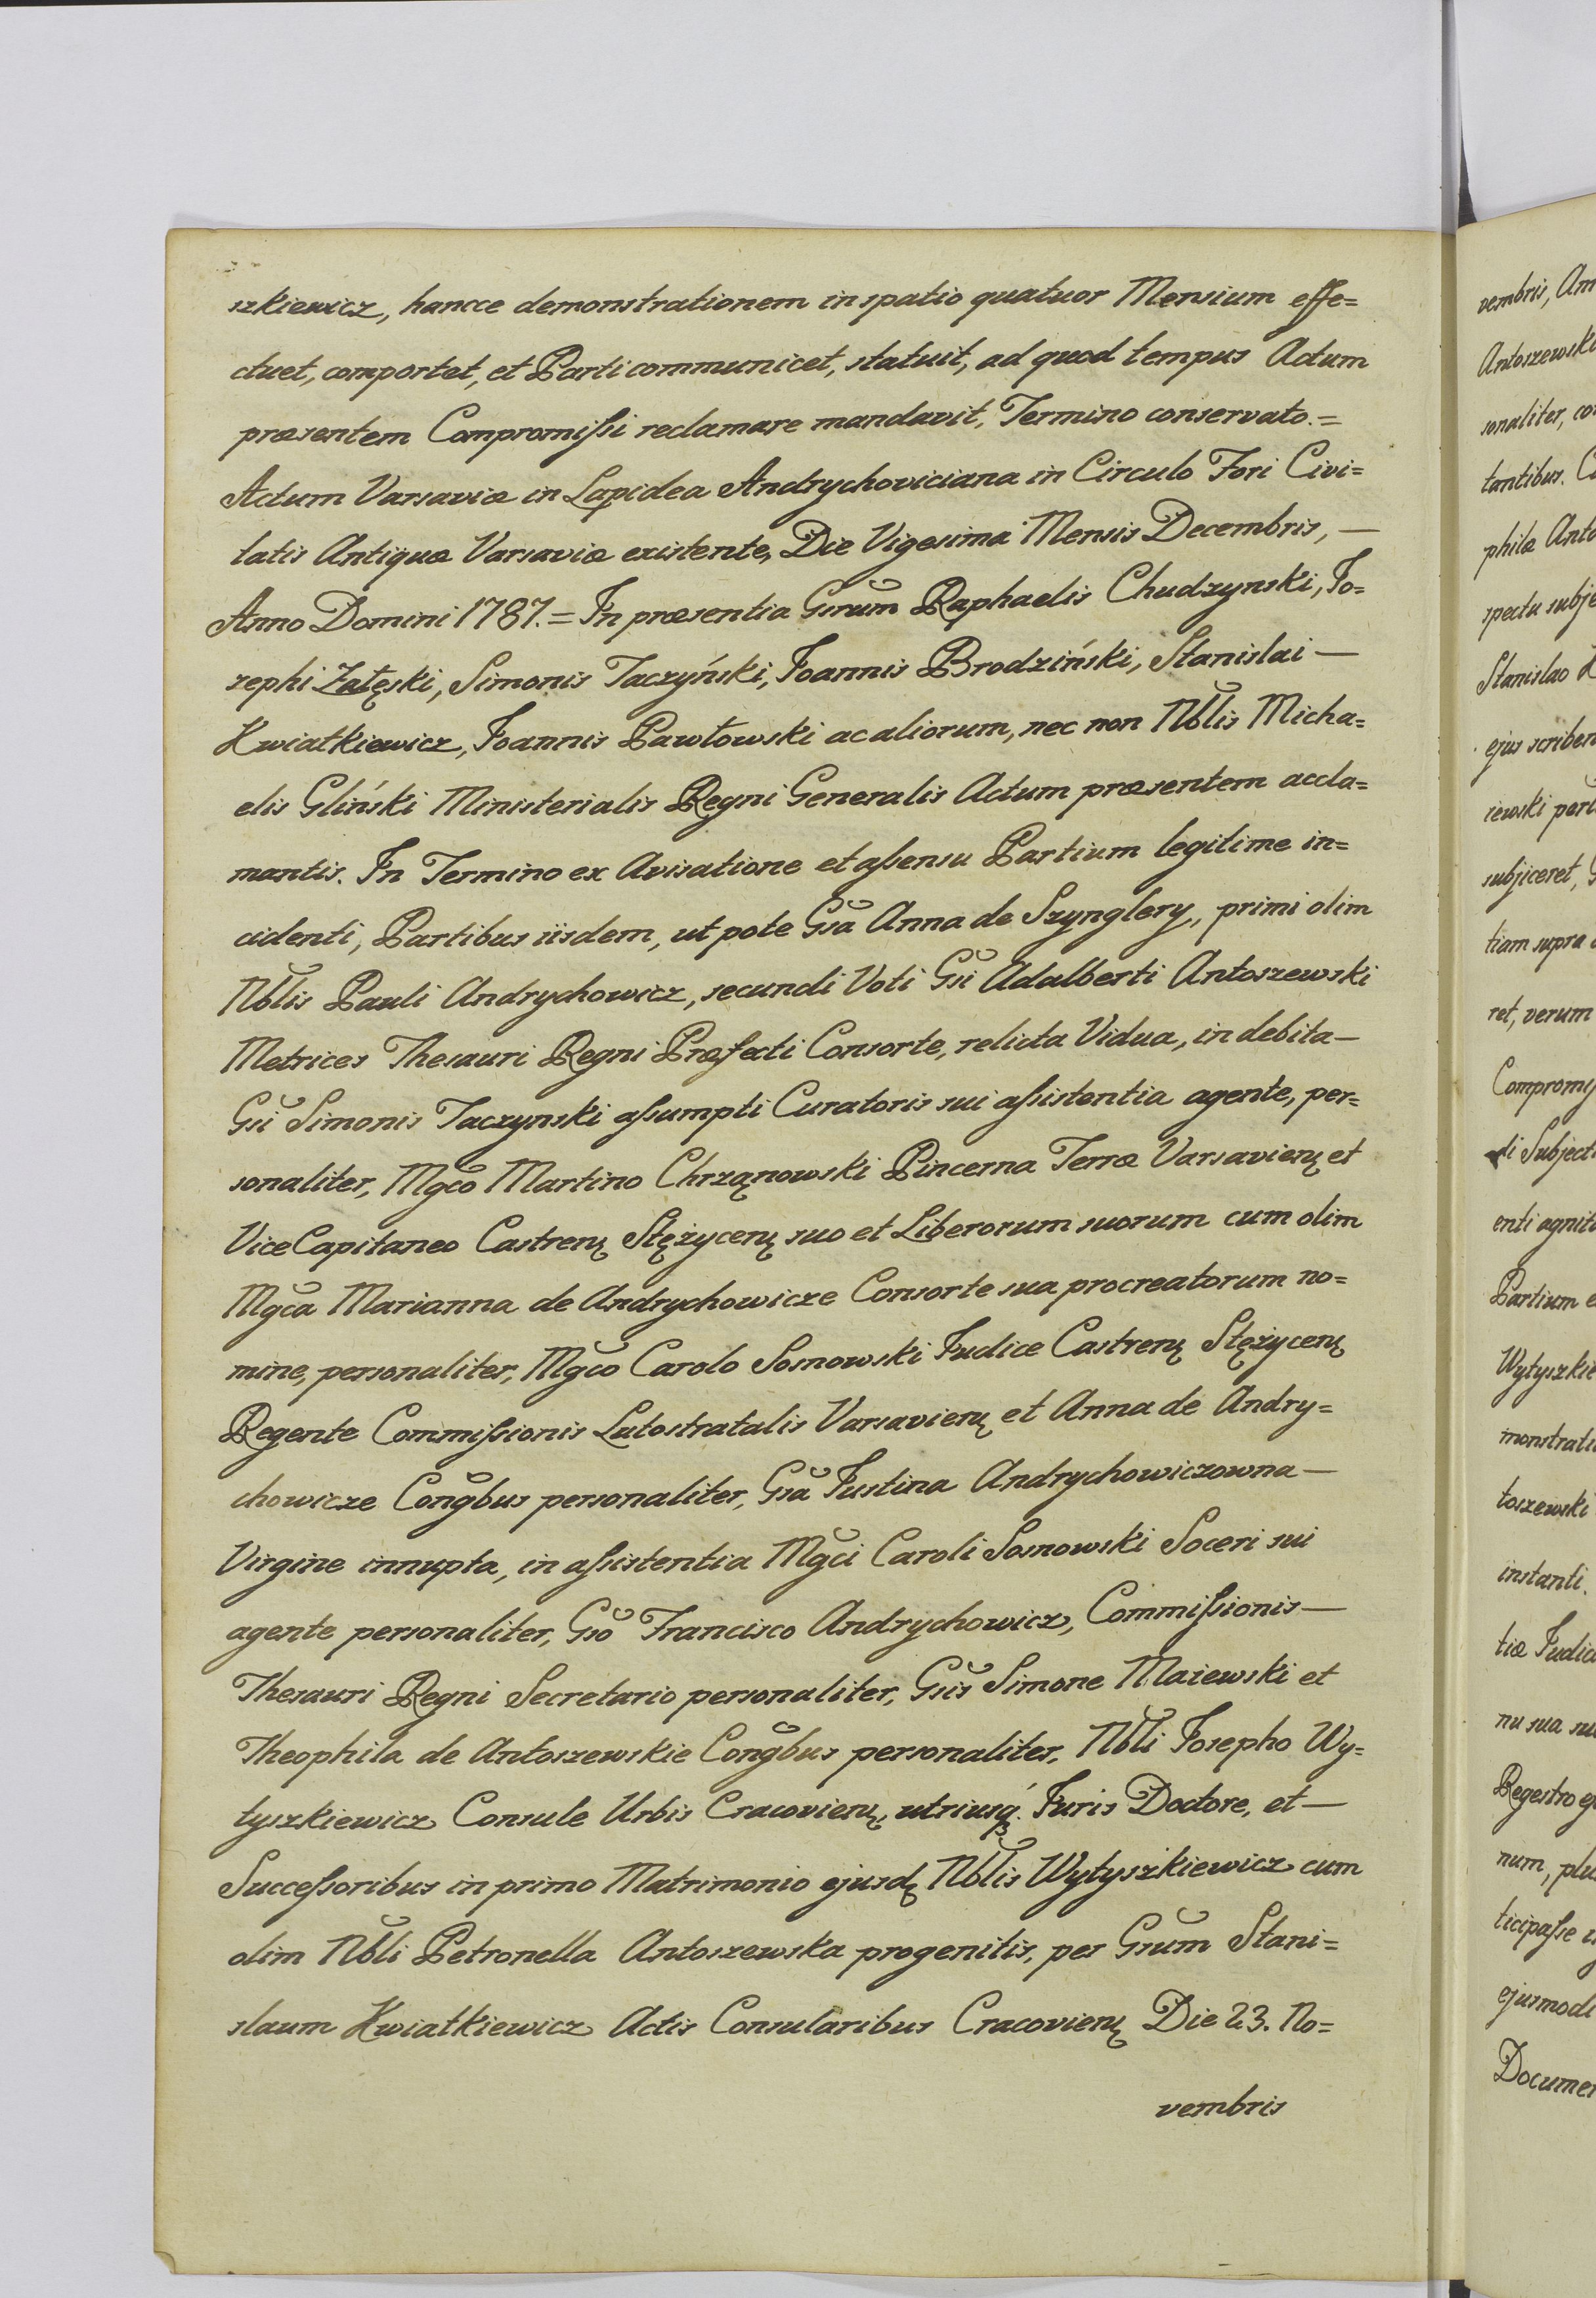 szkiewicz, hancce demonstrationem in spatio quatuor Mensium effe=
ctuet, comportet, et Parti communicet, statuit, ad quod tempus Actum
præsentem Compromiſsi reclamare mandavit, Termino conservato.=
Actum Varsaviæ in Lapidea Andrychoviciana in Circulo Fori Civi=
tatis Antiquæ Varsaviæ existente, Die Vigesima Mensis Decembris, —
Anno Domini 1787.= In præsentia Gsrum̃ Raphaelis Chudzynski, Jo=
sephi Załęski, Simonis Taczyński, Joannis Brodziński, Stanislai —
Kwiatkiewicz, Joannis Pawłowski ac aliorum, nec non Nblis̃ Micha=
elis Gliński Ministerialis Regni Generalis Actum præsentem accla=
mantis. In Termino ex Avisatione et aſsensu Partium legitime in=
cidenti, Partibus iisdem, ut pote Gsã Anna de Szynglery, primi olim
Nblis̃ Pauli Andrychowicz, secundi Voti Gsĩ Adalberti Antoszewski
Metrices Thesauri Regni Præfecti Consorte, relicta Vidua, in debita —
Gsĩ Simonis Taczynski aſsumpti Curatoris sui aſsistentia agente, per=
sonaliter, Mgcõ Martino Chrząnowski Pincerna Terræ Varsavień et
Vice Capitaneo Castreń Stężyceń suo et Liberorum suorum cum olim
Mgcã Marianna de Andrychowicze Consorte sua procreatorum no=
mine, personaliter, Mgcõ Carolo Sosnowski Judice Castreń Stężyceń
Regente Commiſsionis Lutostratalis Varsavień et Anna de Andry=
chowicze Cong̃bus personaliter, Gsã Justina Andrychowiczowna —
Virgine innupta, in aſsistentia Mgcĩ Caroli Sosnowski Soceri sui
agente personaliter, Gsõ Francisco Andrychowicz, Commiſsionis —
Thesauri Regni Secretario personaliter, Gsis̃ Simone Maiewski et
Theophila de Antoszewskie Cong̃bus personaliter, Nblĩ Josepho Wy=
tyszkiewicz Consule Urbis Cracovień, utriusq́ Juris Doctore, et —
Succeſsoribus in primo Matrimonio ejusdę Nblis̃ Wytyszkiewicz cum
olim Nblĩ Petronella Antoszewska progenitis, per Gsum̃ Stani=
slaum Kwiatkiewicz Actis Consularibus Cracovień Die 23. No=
vembris
vembris, An
Antoszewski
sonaliter, co
tantibus. C
philæ Anto
spectu subje
Stanislao K
ejus scriben
iewski part
subjiceret, G
tiam supra
ret, verum
Compromiſ
di Subject
enti agniti
Partium e
Wytyszkie
monstrati
toszewski
instanti.
tiæ Judici
nu sua su
Regestro ej
num, plu
ticipaſse i
ejusmodi
Documen